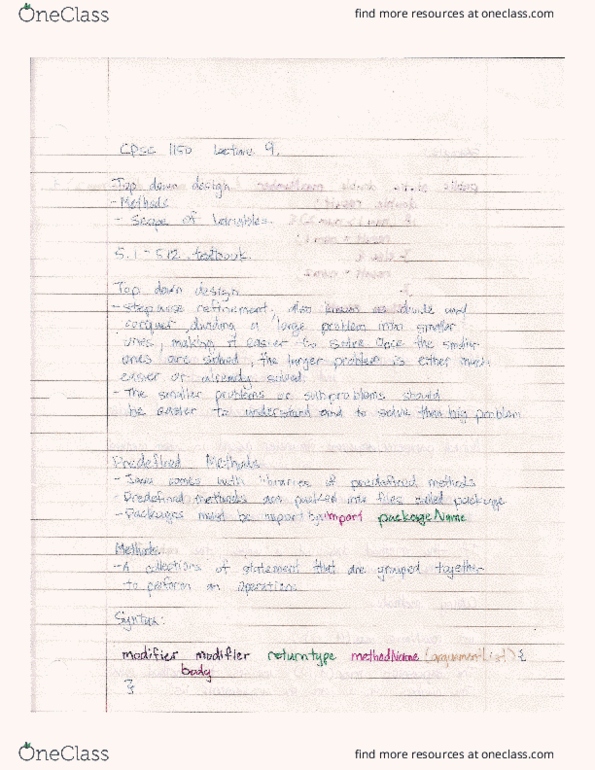 OneClass
find more resources at oneclass.com
CPSC 1150 Lecture 9.
Top down design
- Methods
- Scope of Variables.
5.1 - 5.12 textbook.
Top down design
- Stepwise refinement, also known as divide and
conquer, dividing a large problem into smaller
ones, making it easier to solve. Once the smaller
ones are solved, the larger problem is either much
easier or already solved.
- The smaller problems or subproblems should
be easier to understand and to solve than big problem
Predefined Methods
- Java comes with libraries of predefined methods
- Predefined methods are packed into files called package
- Packages must be import by import packageName
Methods
- A collections of statement that are grouped together
to preform an operations
Syntax:
modifier modifier returntype methodName (argumentList) {
body
}
OneClass
find more resources at oneclass.com